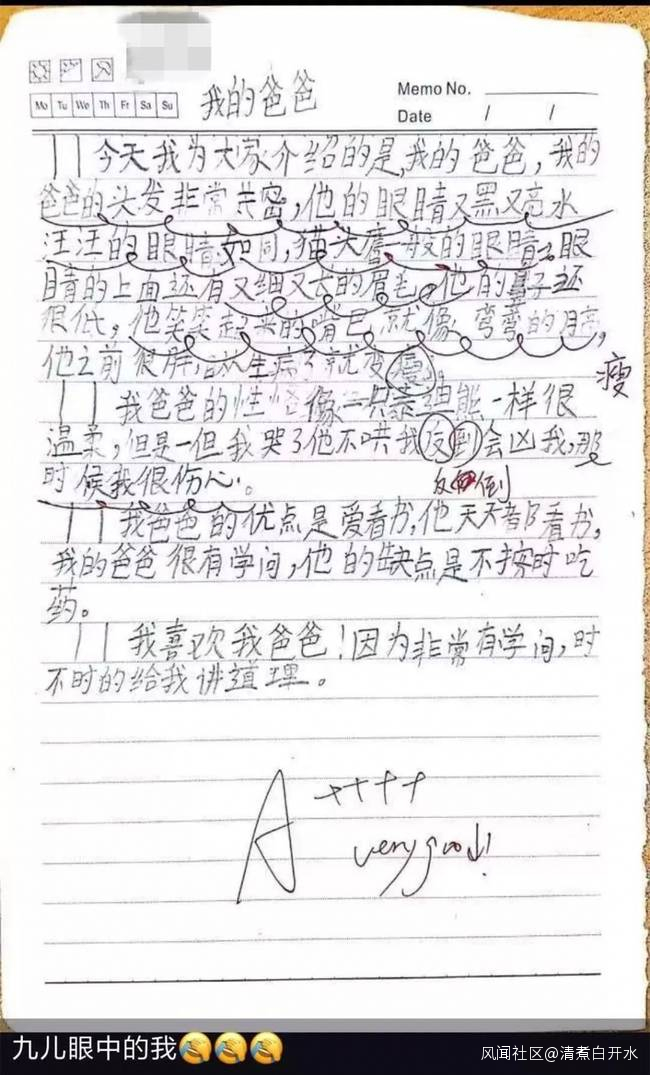 Mo Tu We Th Fr Sa Su
我的爸爸
Memo No.
Date / /
今天我为大家介绍的是,我的爸爸,我的
爸爸的头发非常,他的眼睛又黑又亮水
汪汪的眼睛,如同,猫头鹰一般的眼睛。眼
睛的上面还有又细又长的眉毛。他的鼻子还
很低,他笑笑起来的嘴巴就像弯弯的月亮,
他之前很胖,生病了就变
瘦
我爸爸的性格像一只熊一样很
温柔,但是一但我哭了他不哄我反到会凶我,那
时候我很伤心。
反倒
我爸爸的优点是爱看书,他天天都看书,
我的爸爸很有学问,他的缺点是不按时吃
药。
我喜欢我爸爸!因为非常有学问,时
不时的给我讲道理。
A++++
very good!
九儿眼中的我
风闻社区@清煮白开水